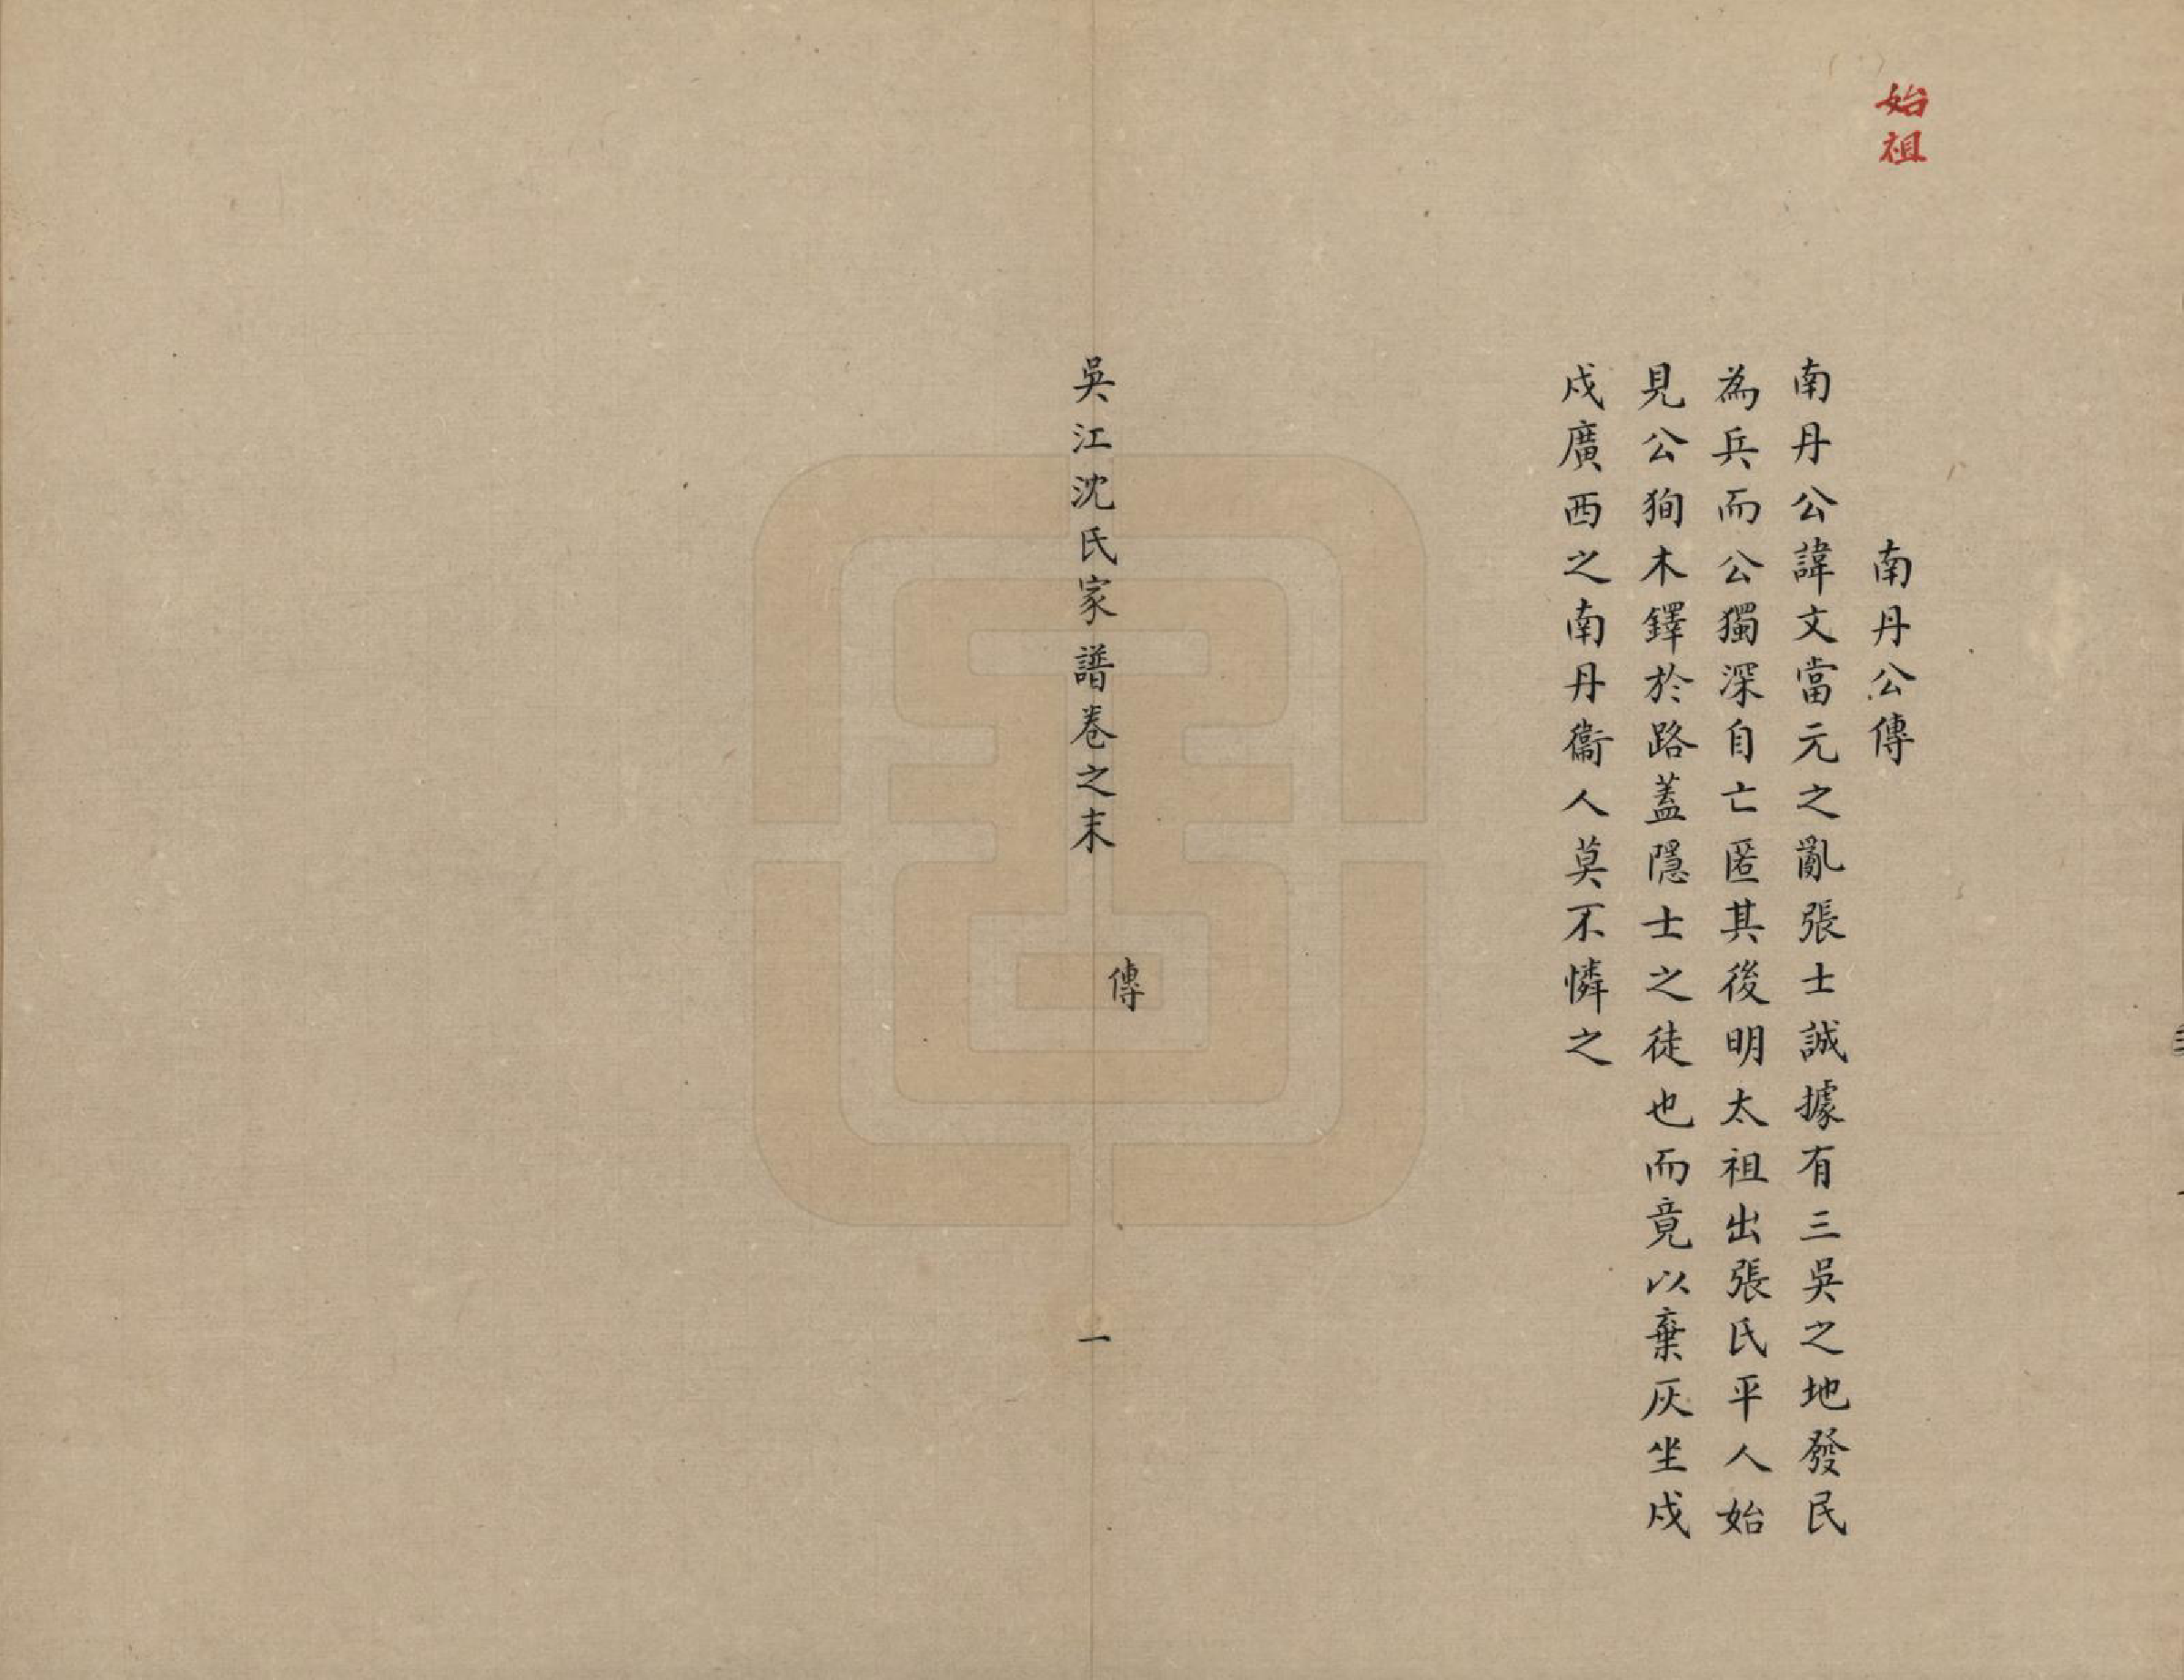 始祖
南丹公傳
南丹公諱文當元之亂張士誠據有三吳之地發民
為兵而公獨深自亡匿其後明太祖出張氏平人始
見公狥木鐸於路蓋隱士之徒也而竟以棄灰坐戍
戍廣西之南丹衞人莫不憐之
吳江沈氏家譜卷之末
傳
一